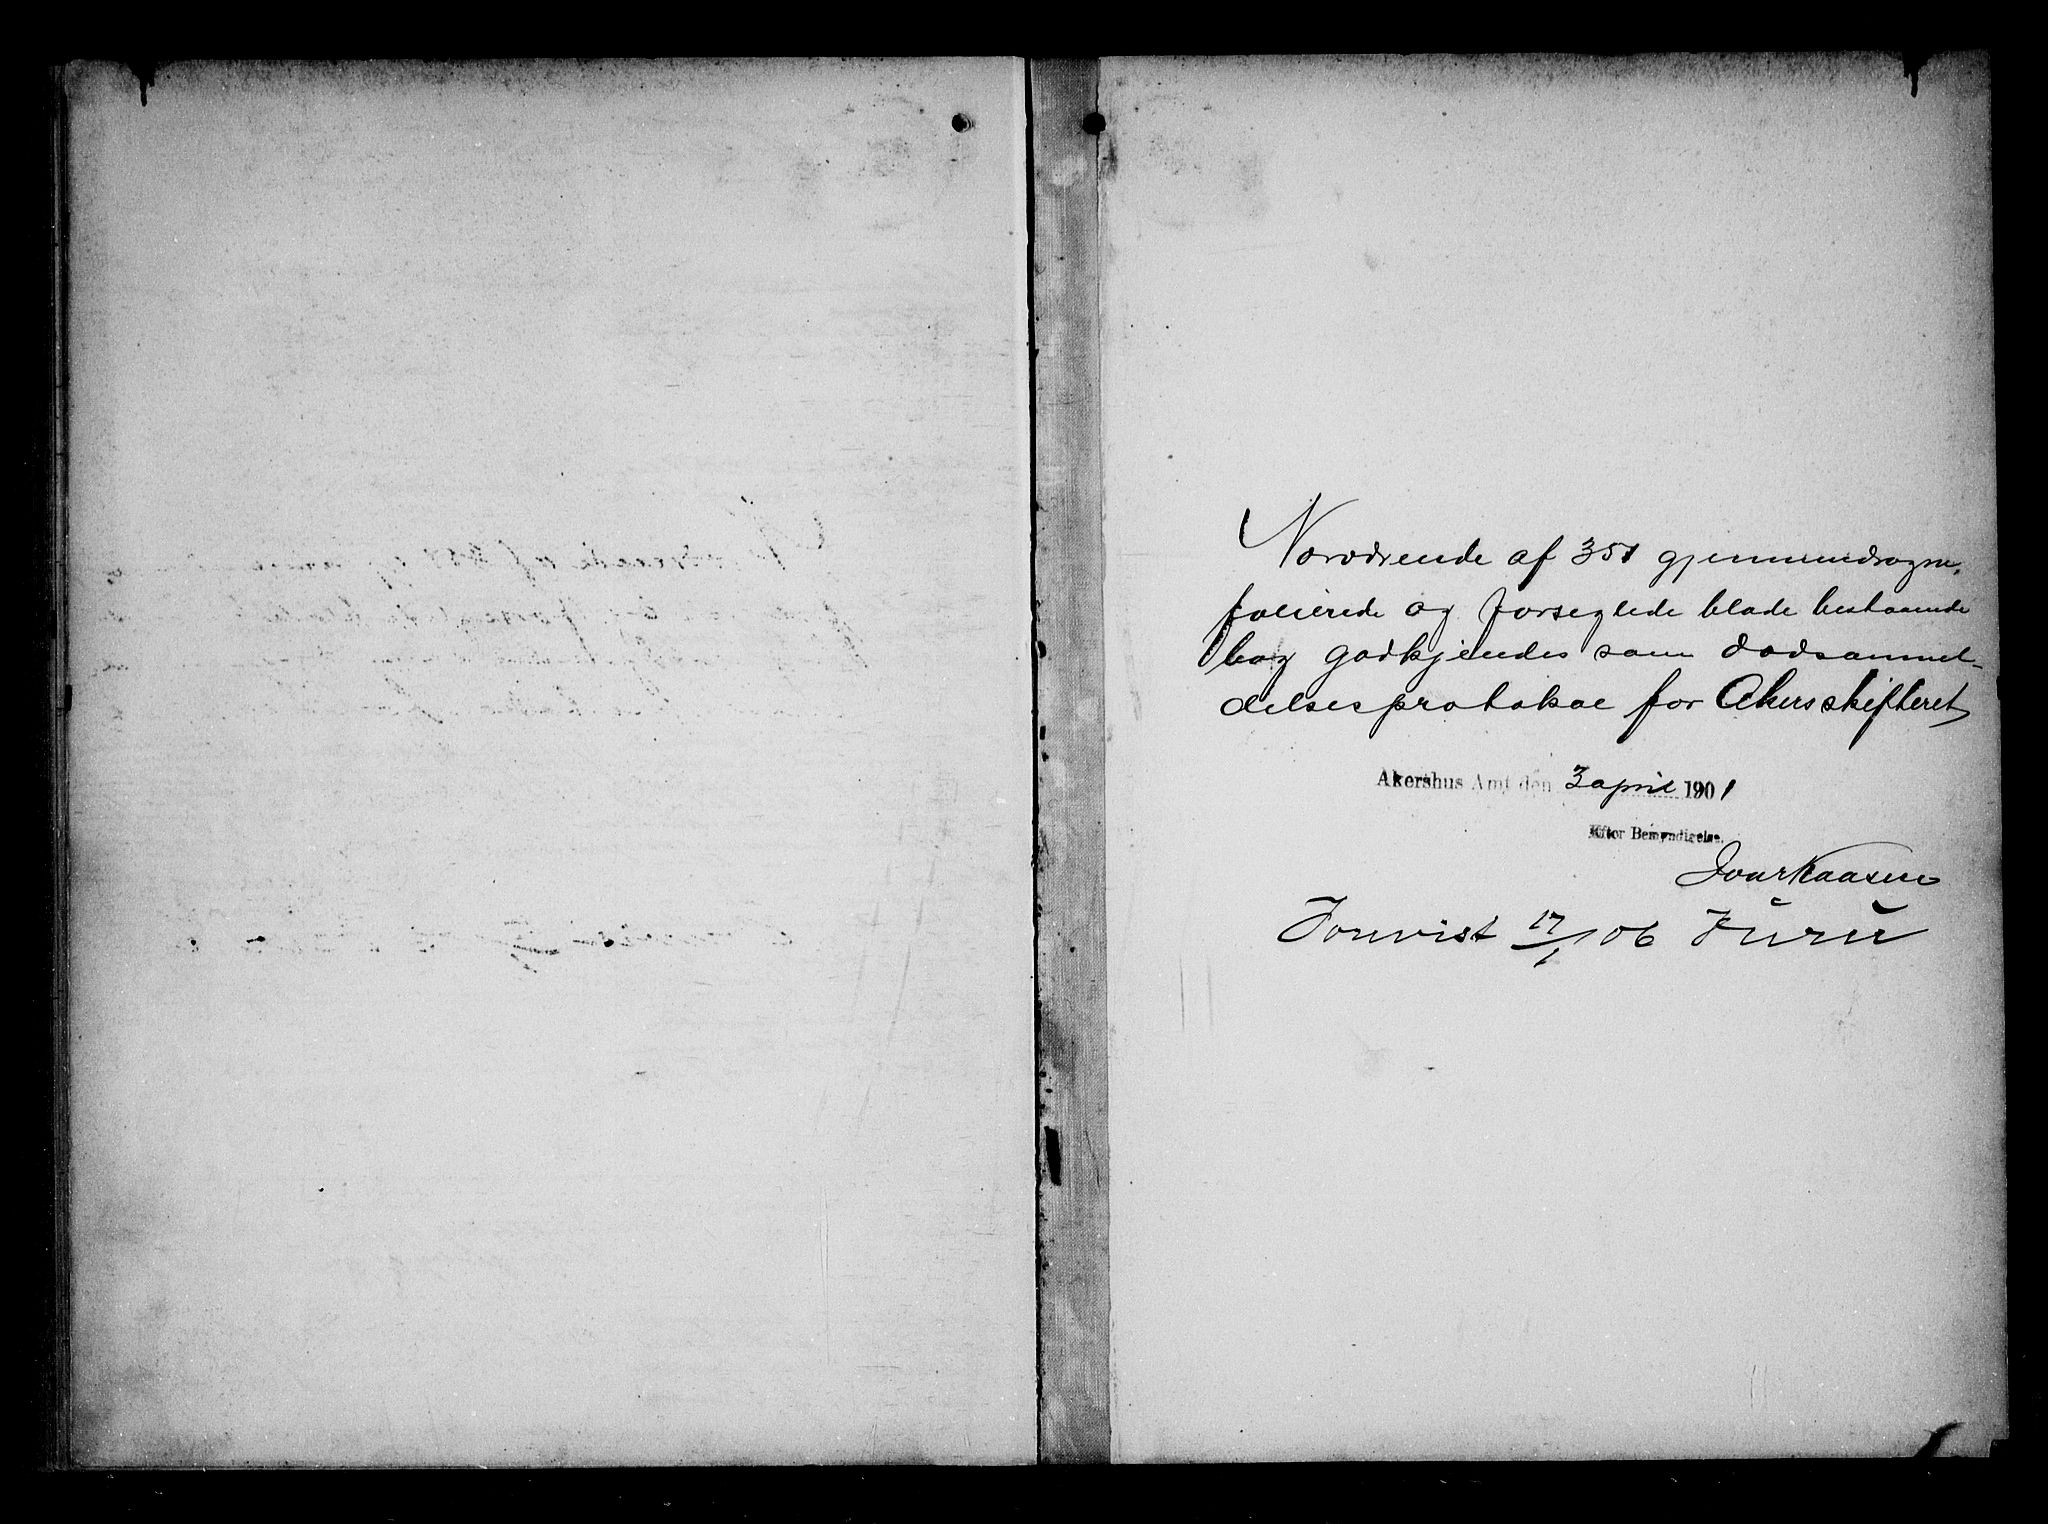 Nærværende af 351 gjennemdragne,
folierede og forseglede blade bestaaende
bog godkjendes som dødsanmel-
delsesprotokol for Akersskifteret
Akershus Amt den 3 april 1901
Efter Bemyndigelse.
Ivar Kaasen
Forevist 17/1 06 Furu